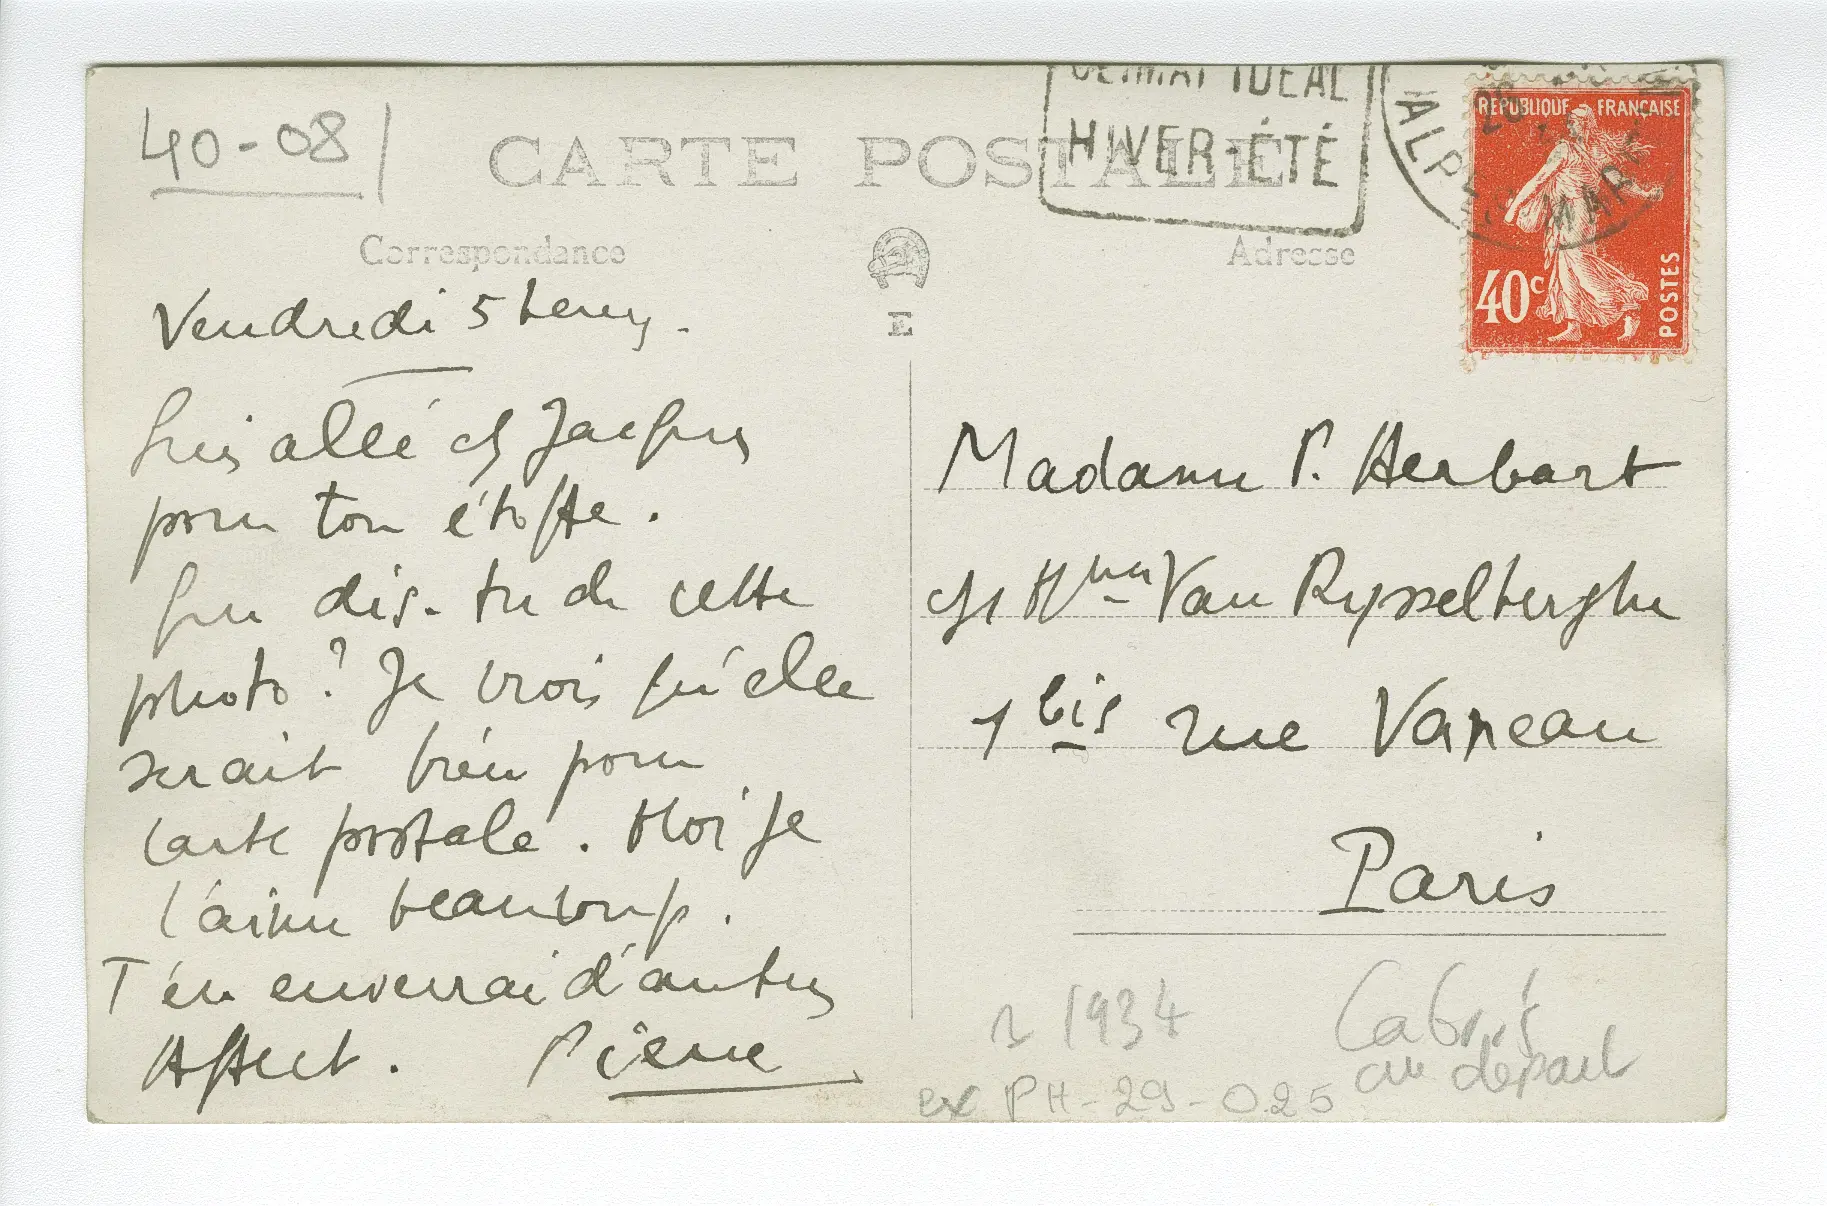 40-08
CARTE POSTALE
CLIMAT IDEAL
HIVER-ÉTÉ
ALP MAR
REPUBLIQUE FRANÇAISE
40c
POSTES
Correspondance
Adresse
E
Vendredi 5
Suis allé ch Jacques
pour ton étoffe.
Que dis-tu de cette
photo ? Je crois qu'elle
serait bien pour
carte postale. Moi je
l'aime beaucoup.
T'en enverrai d'autres
Affect. Pierre
Madame P. Herbart
ch Mme Van Rysselberghe
1 bis rue Vaneau
Paris
1934
Cabris
au départ
ex PH-29-025